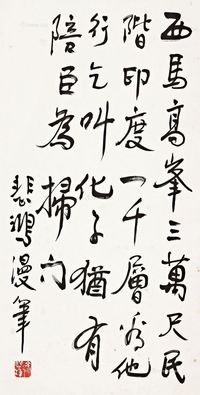 西馬高峯三萬尺民
階印度一千層為他
行乞叫化子猶有
陪臣為掃門
悲鴻漫筆